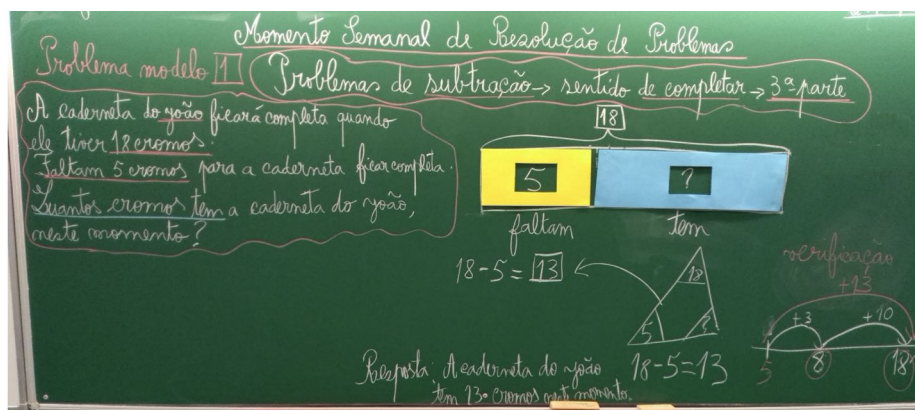 Momento Semanal de Resolução de Problemas
Problema modelo 1
Problemas de subtração → sentido de completar → 3ª parte
A caderneta do João ficará completa quando
ele tiver 18 cromos.
Faltam 5 cromos para a caderneta ficar completa.
Quantos cromos tem a caderneta do João,
neste momento?
18
5 ?
faltam tem
18-5=13
18
5 ?
18-5=13
verificação
+13
+3 +10
5 8 18
Resposta: A caderneta do João
tem 13 cromos neste momento.